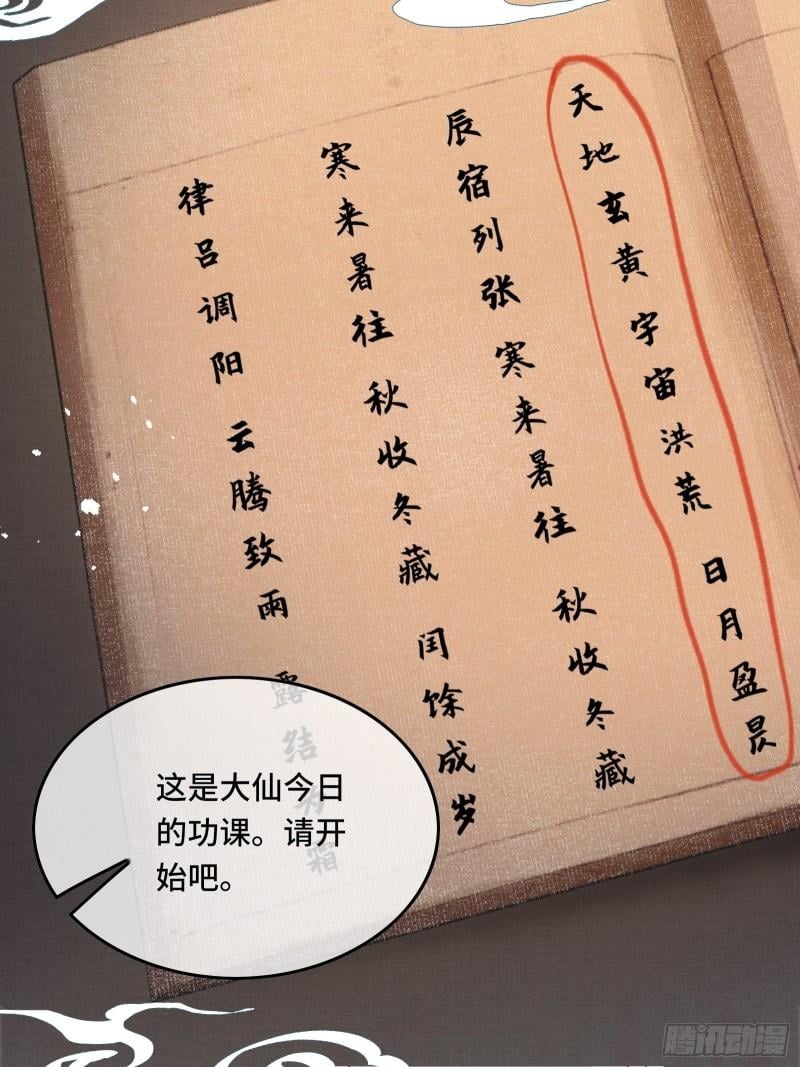 天地玄黄 宇宙洪荒 日月盈昃
辰宿列张 寒来暑往 秋收冬藏
寒来暑往 秋收冬藏 闰馀成岁
律吕调阳 云腾致雨 露结为霜
这是大仙今日
的功课。请开
始吧。
腾讯动漫